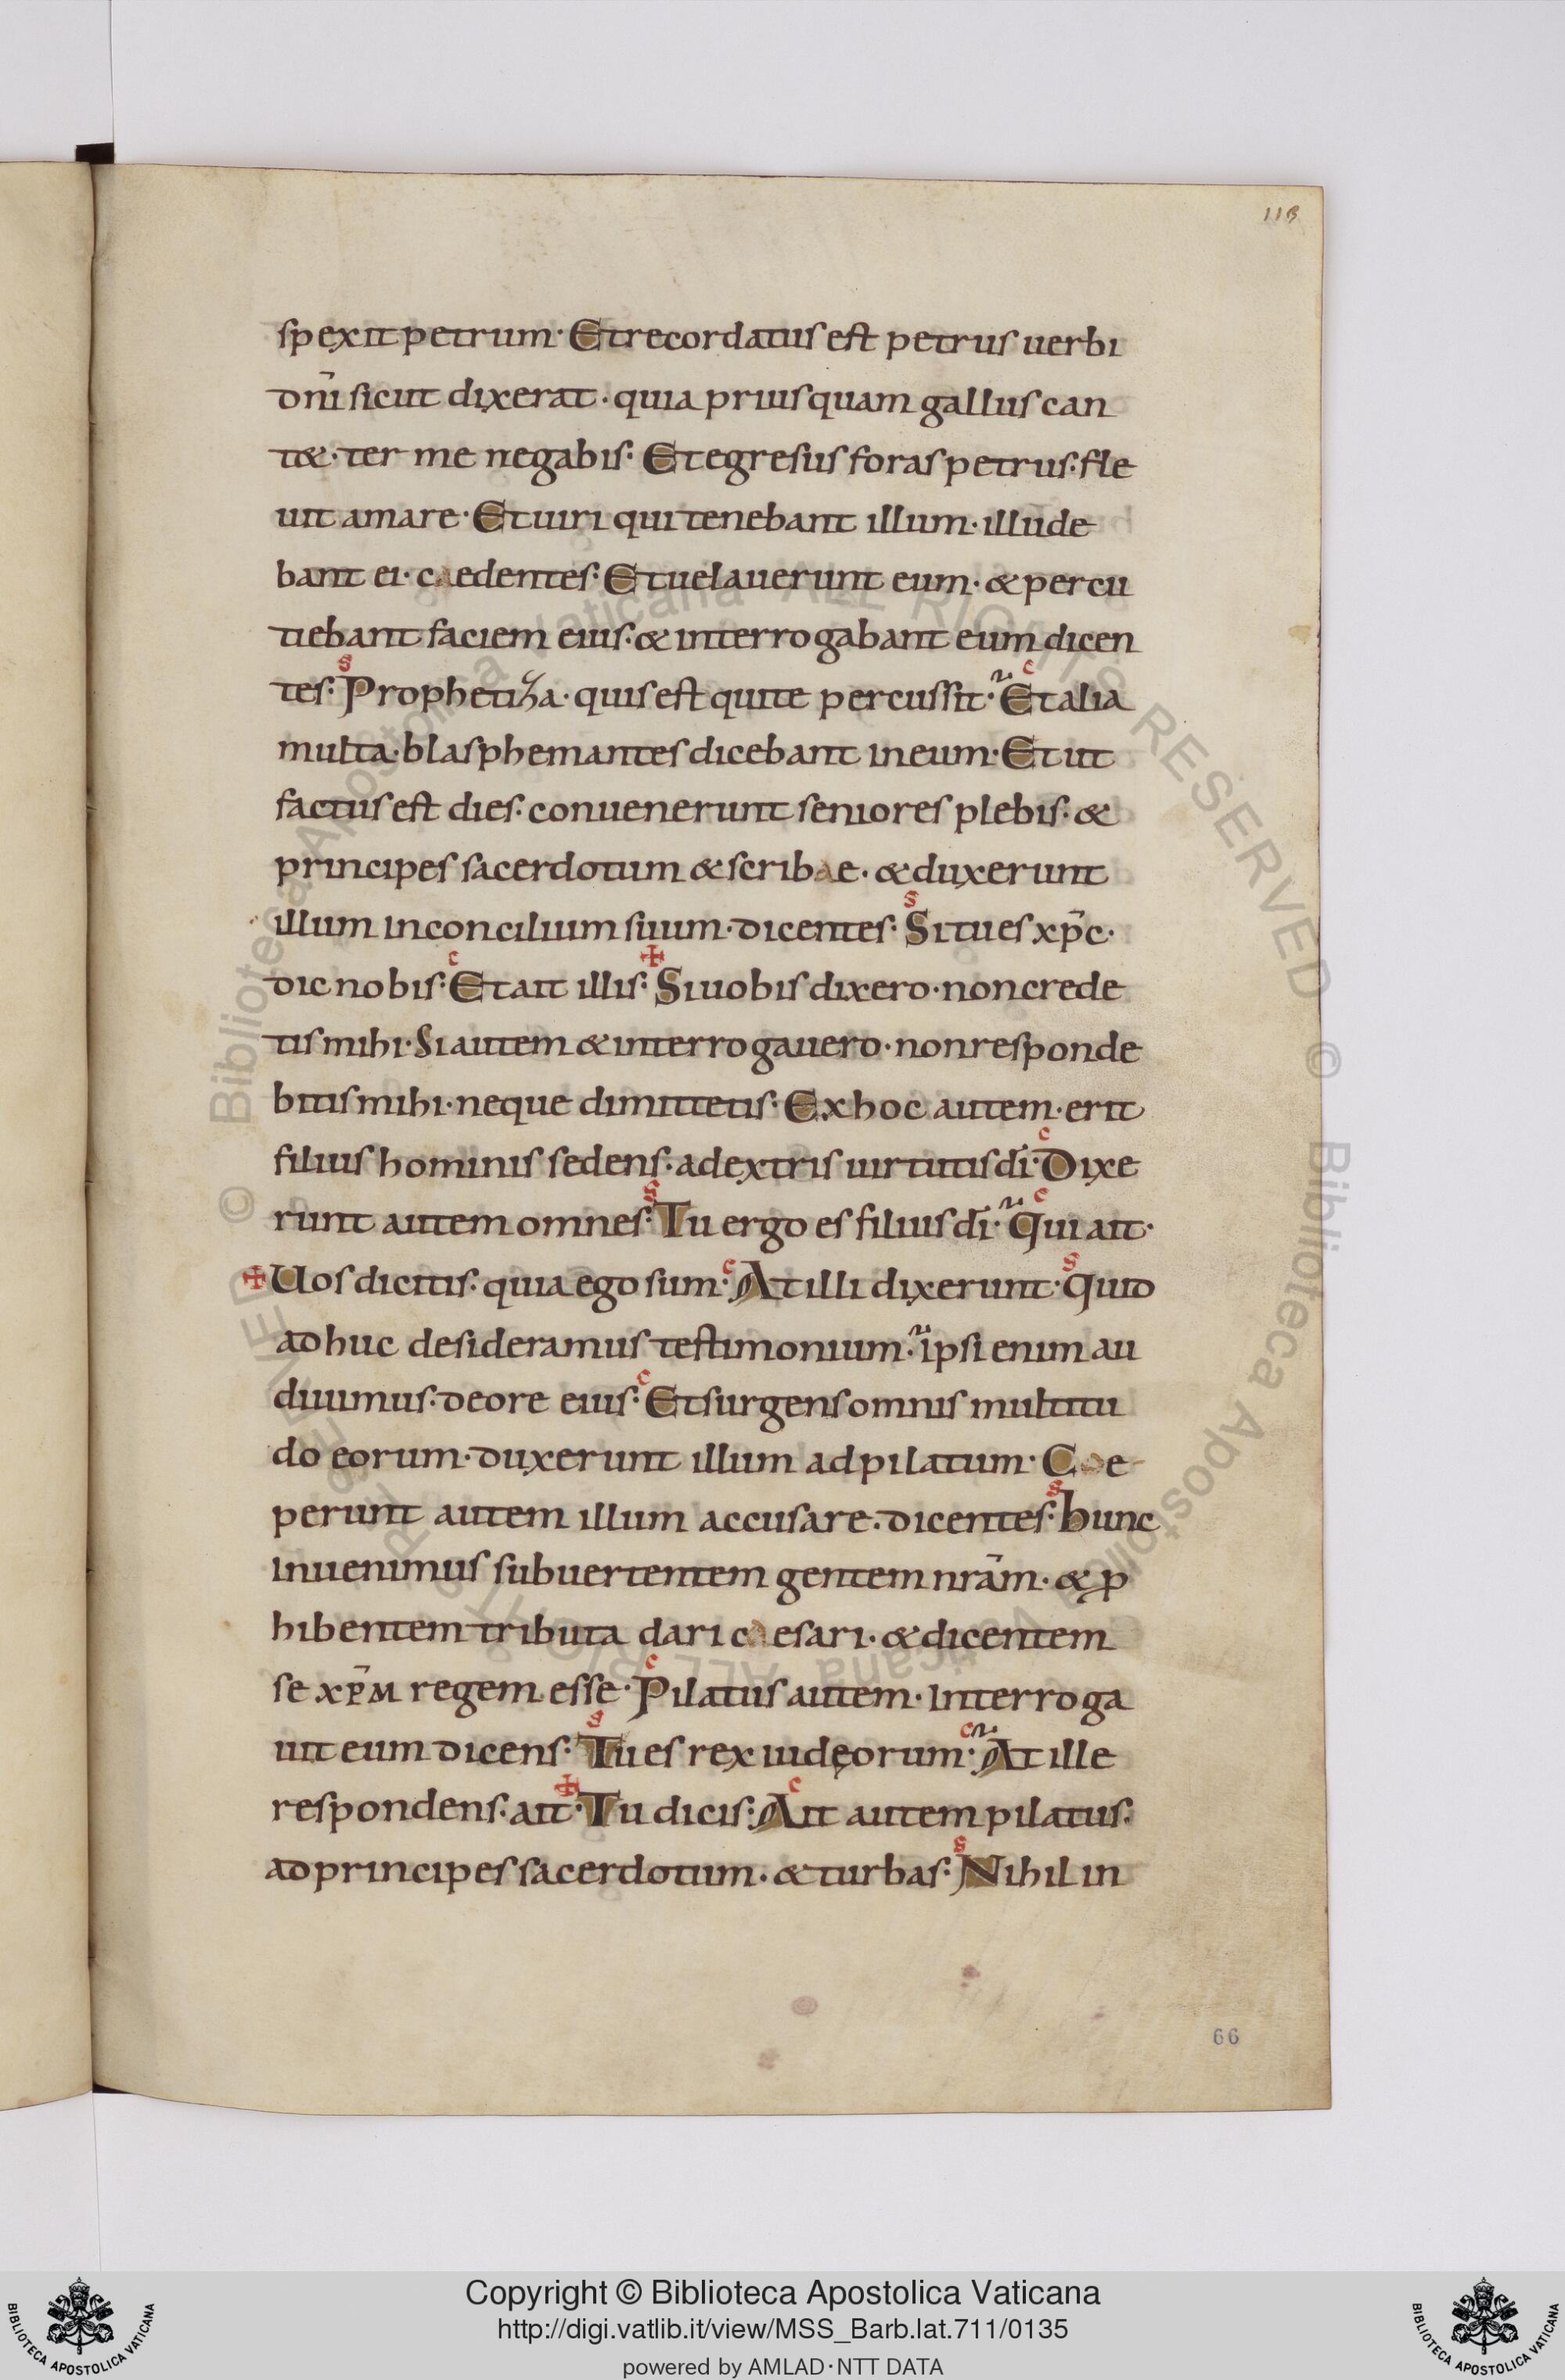 118
spexit petrum· Et recordatus est petrus uerbi
dn̄i sicut dixerat· quia priusquam gallus can
t&· ter me negabis: Et egresus foras petrus· fle
uit amare· Et uiri qui tenebant illum· illude
bant ei· caedentes: Et uelauerunt eum· & percu
tiebant faciem eius· & interrogabant eum dicen
tes: Prophetiza· quis est qui te percussit· Et alia
multa· blasphemantes dicebant in eum· Et ut
factus est dies· conuenerunt seniores plebis· &
principes sacerdotum & scribae· & duxerunt
illum in concilium suum· dicentes· Si tu es xp̄c·
dic nobis: Et ait illis: Si uobis dixero· non crede
tis mihi· Si autem & interrogauero· non responde
bitis mihi· neque dimittetis: Ex hoc autem· erit
filius hominis sedens· a dextris uirtutis dī· Dixe
runt autem omnes: Tu ergo es filius dī· Qui ait·
Uos dicitis· quia ego sum: At illi dixerunt· Quid
adhuc desideramus testimonium· ipsi enim au
diuimus· de ore eius: Et surgens omnis multitu
do eorum· duxerunt illum ad pilatum· Coe
perunt autem illum accusare· dicentes: hunc
inuenimus subuertentem gentem nrām· & ꝓ
hibentem tributa dari caesari· & dicentem
se xp̄m regem esse· Pilatus autem· Interroga
uit eum dicens· Tu es rex iudęorum· At ille
respondens· ait· Tu dicis: Ait autem pilatus·
ad principes sacerdotum· & turbas: Nihil in
66
© Biblioteca Apostolica Vaticana ALL RIGHTS RESERVED © Biblioteca Apostolica Vaticana ALL RIGHTS RESERVED
Copyright © Biblioteca Apostolica Vaticana
http://digi.vatlib.it/view/MSS_Barb.lat.711/0135
powered by AMLAD·NTT DATA
BIBLIOTECA APOSTOLICA VATICANA
BIBLIOTECA APOSTOLICA VATICANA